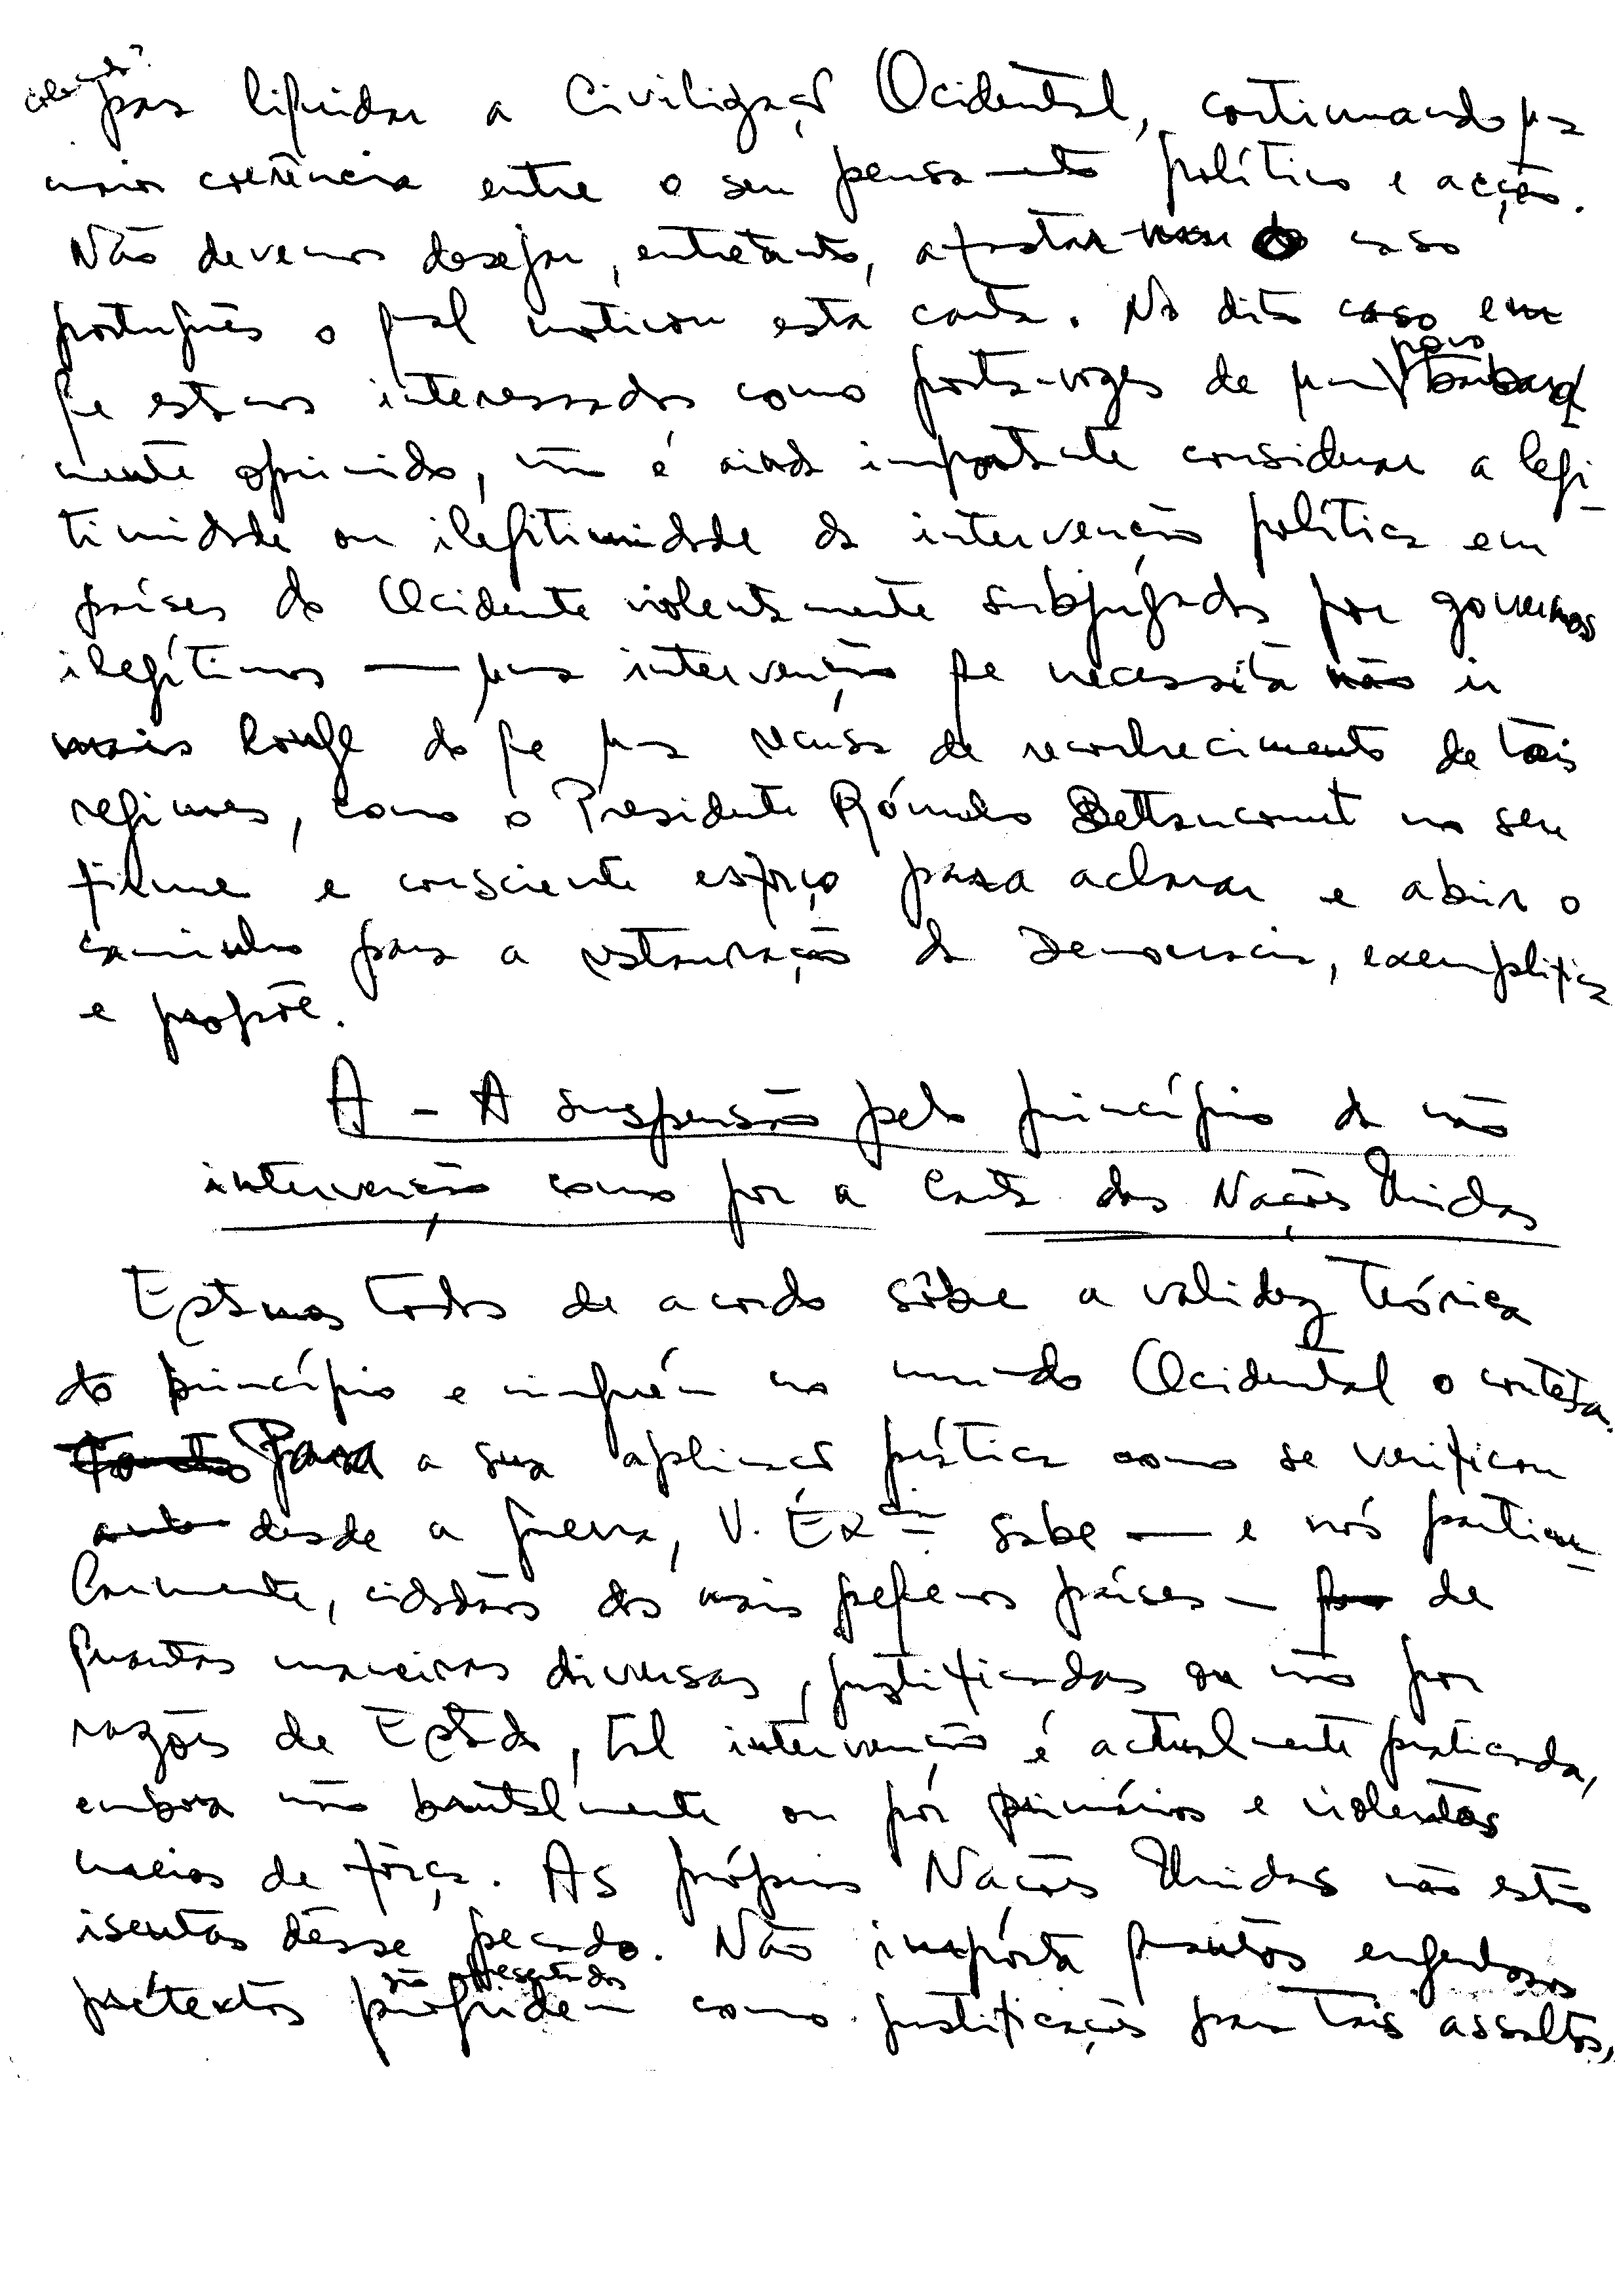 para liquidar a Civilização Ocidental, continuando uma
maior coerência entre o seu pensamento político e acção.
Não devemos desejar, entretanto, afastar o caso
português o qual motivou esta carta. No dito caso em
que estamos interessados como porta-vozes de um povo barbara
mente oprimido, não é ainda importante considerar a legi-
timidade ou ilegitimidade da intervenção política em
países do Ocidente violentamente subjugados por governos
ilegítimos — uma intervenção que necessita não ir
mais longe do que uma recusa de reconhecimento de tais
regimes, como o Presidente Rómulo Bettancourt no seu
firme e consciente esforço para aclarar e abrir o
caminho para a restauração da Democracia, exemplifica
e propõe.
A - A suspensão pelo princípio da não
intervenção como por a Carta das Nações Unidas
Estamos todos de acordo sôbre a validez teórica
do princípio e ninguém no mundo Ocidental o contesta.
Para a sua aplicação prática como se verificou
desde a guerra, V. Éxcia. sabe — e nós particu-
larmente, cidadãos dos mais pequenos países — de
quantas maneiras diversas, justificadas ou não por
razões de Estado, tal intervenção é actualmente praticada,
embora não brutalmente ou pór primários e violentos
meios de fôrça. As próprias Nações Unidas não estão
isentas dêsse pecado. Não impórta quantos engenhosos
são apresentados
pretextos como justificações para tais assaltos,